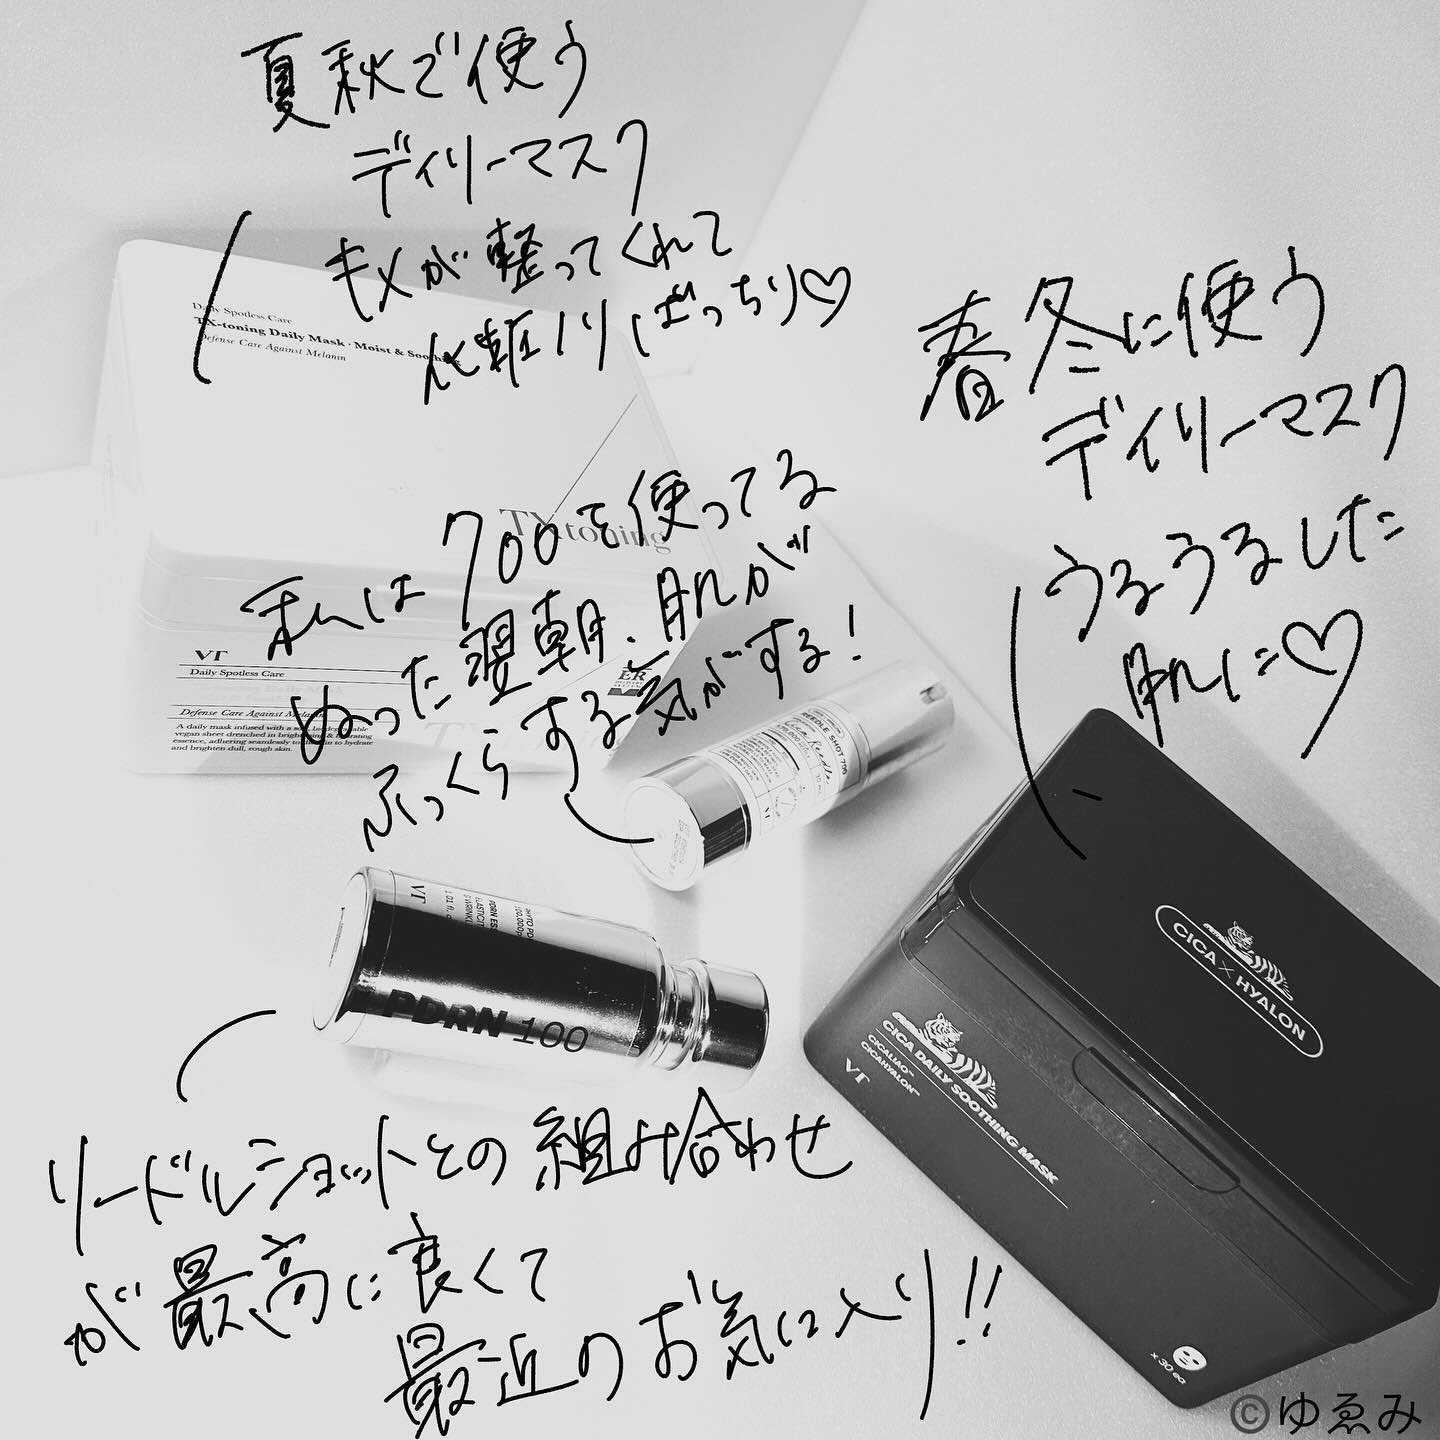 夏秋で使う
デイリーマスク
キメが整ってくれて
化粧ノリばっちり♡
Daily Spotless Care
TX-toning Daily Mask · Moist & Soothing
Defense Care Against Melanin
TX toning
春冬に使う
デイリーマスク
うるうるした
肌に♡
私は700を使ってる
ぬった翌朝、肌が
ふっくらする気がする!
VT
Daily Spotless Care
Defense Care Against Melanin
A daily mask infused with a
vegan sheet drenched in brightening & hydrating
essence, adhering seamlessly to the skin to hydrate
and brighten dull, rough skin.
REEDLE SHOT 700
VT
PDRN 100
CICA × HYALON
CICA DAILY SOOTHING MASK
CICALIAO™
CICAHYALON™
VT
x 30 ea
リードルショットとの組み合わせ
が最高に良くて
最近のお気に入り!!
©ゆゑみ